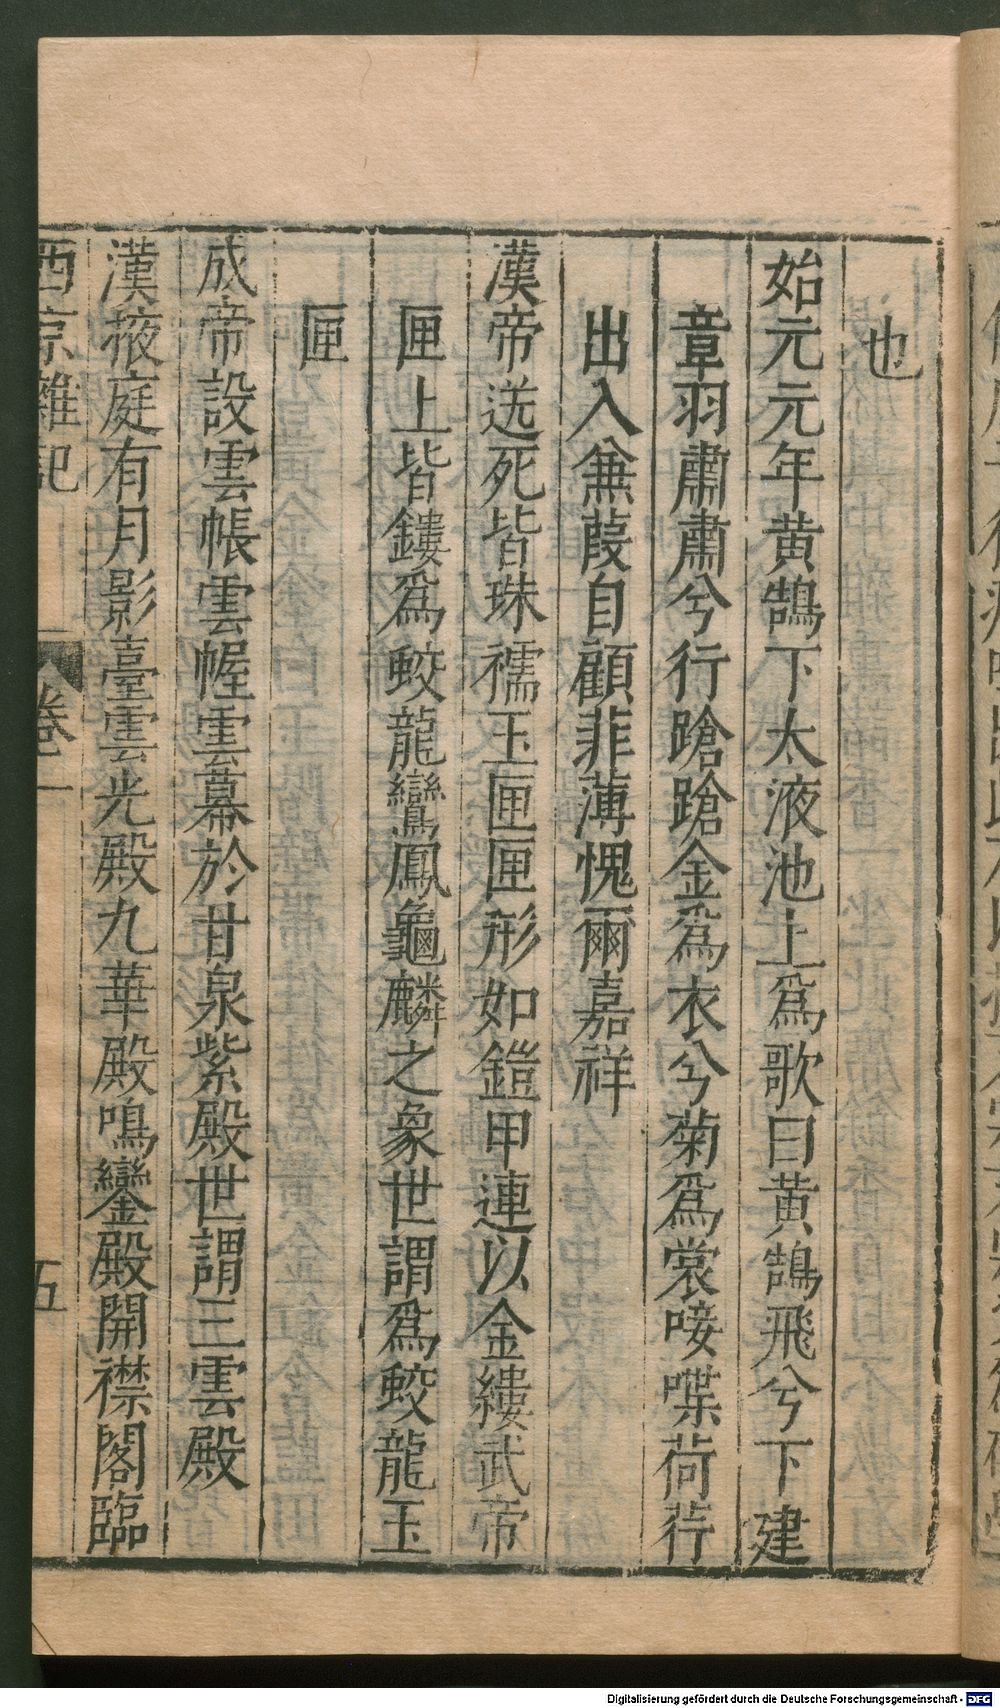 也
始元元年黄鵠下太液池上爲歌曰黄鵠飛兮下建
章羽肅肅兮行蹌蹌金爲衣兮菊爲裳唼喋荷荇
出入蒹葭自顧菲薄愧爾嘉祥
漢帝送死皆珠襦玉匣匣形如鎧甲連以金縷武帝
匣上皆鏤爲蛟龍鸞鳳龜麟之象世謂爲蛟龍玉
匣
成帝設雲帳雲幄雲幕於甘泉紫殿世謂三雲殿
漢掖庭有月影臺雲光殿九華殿鳴鑾殿開襟閣臨
西京雜記 卷一 五
Digitalisierung gefördert durch die Deutsche Forschungsgemeinschaft - DFG